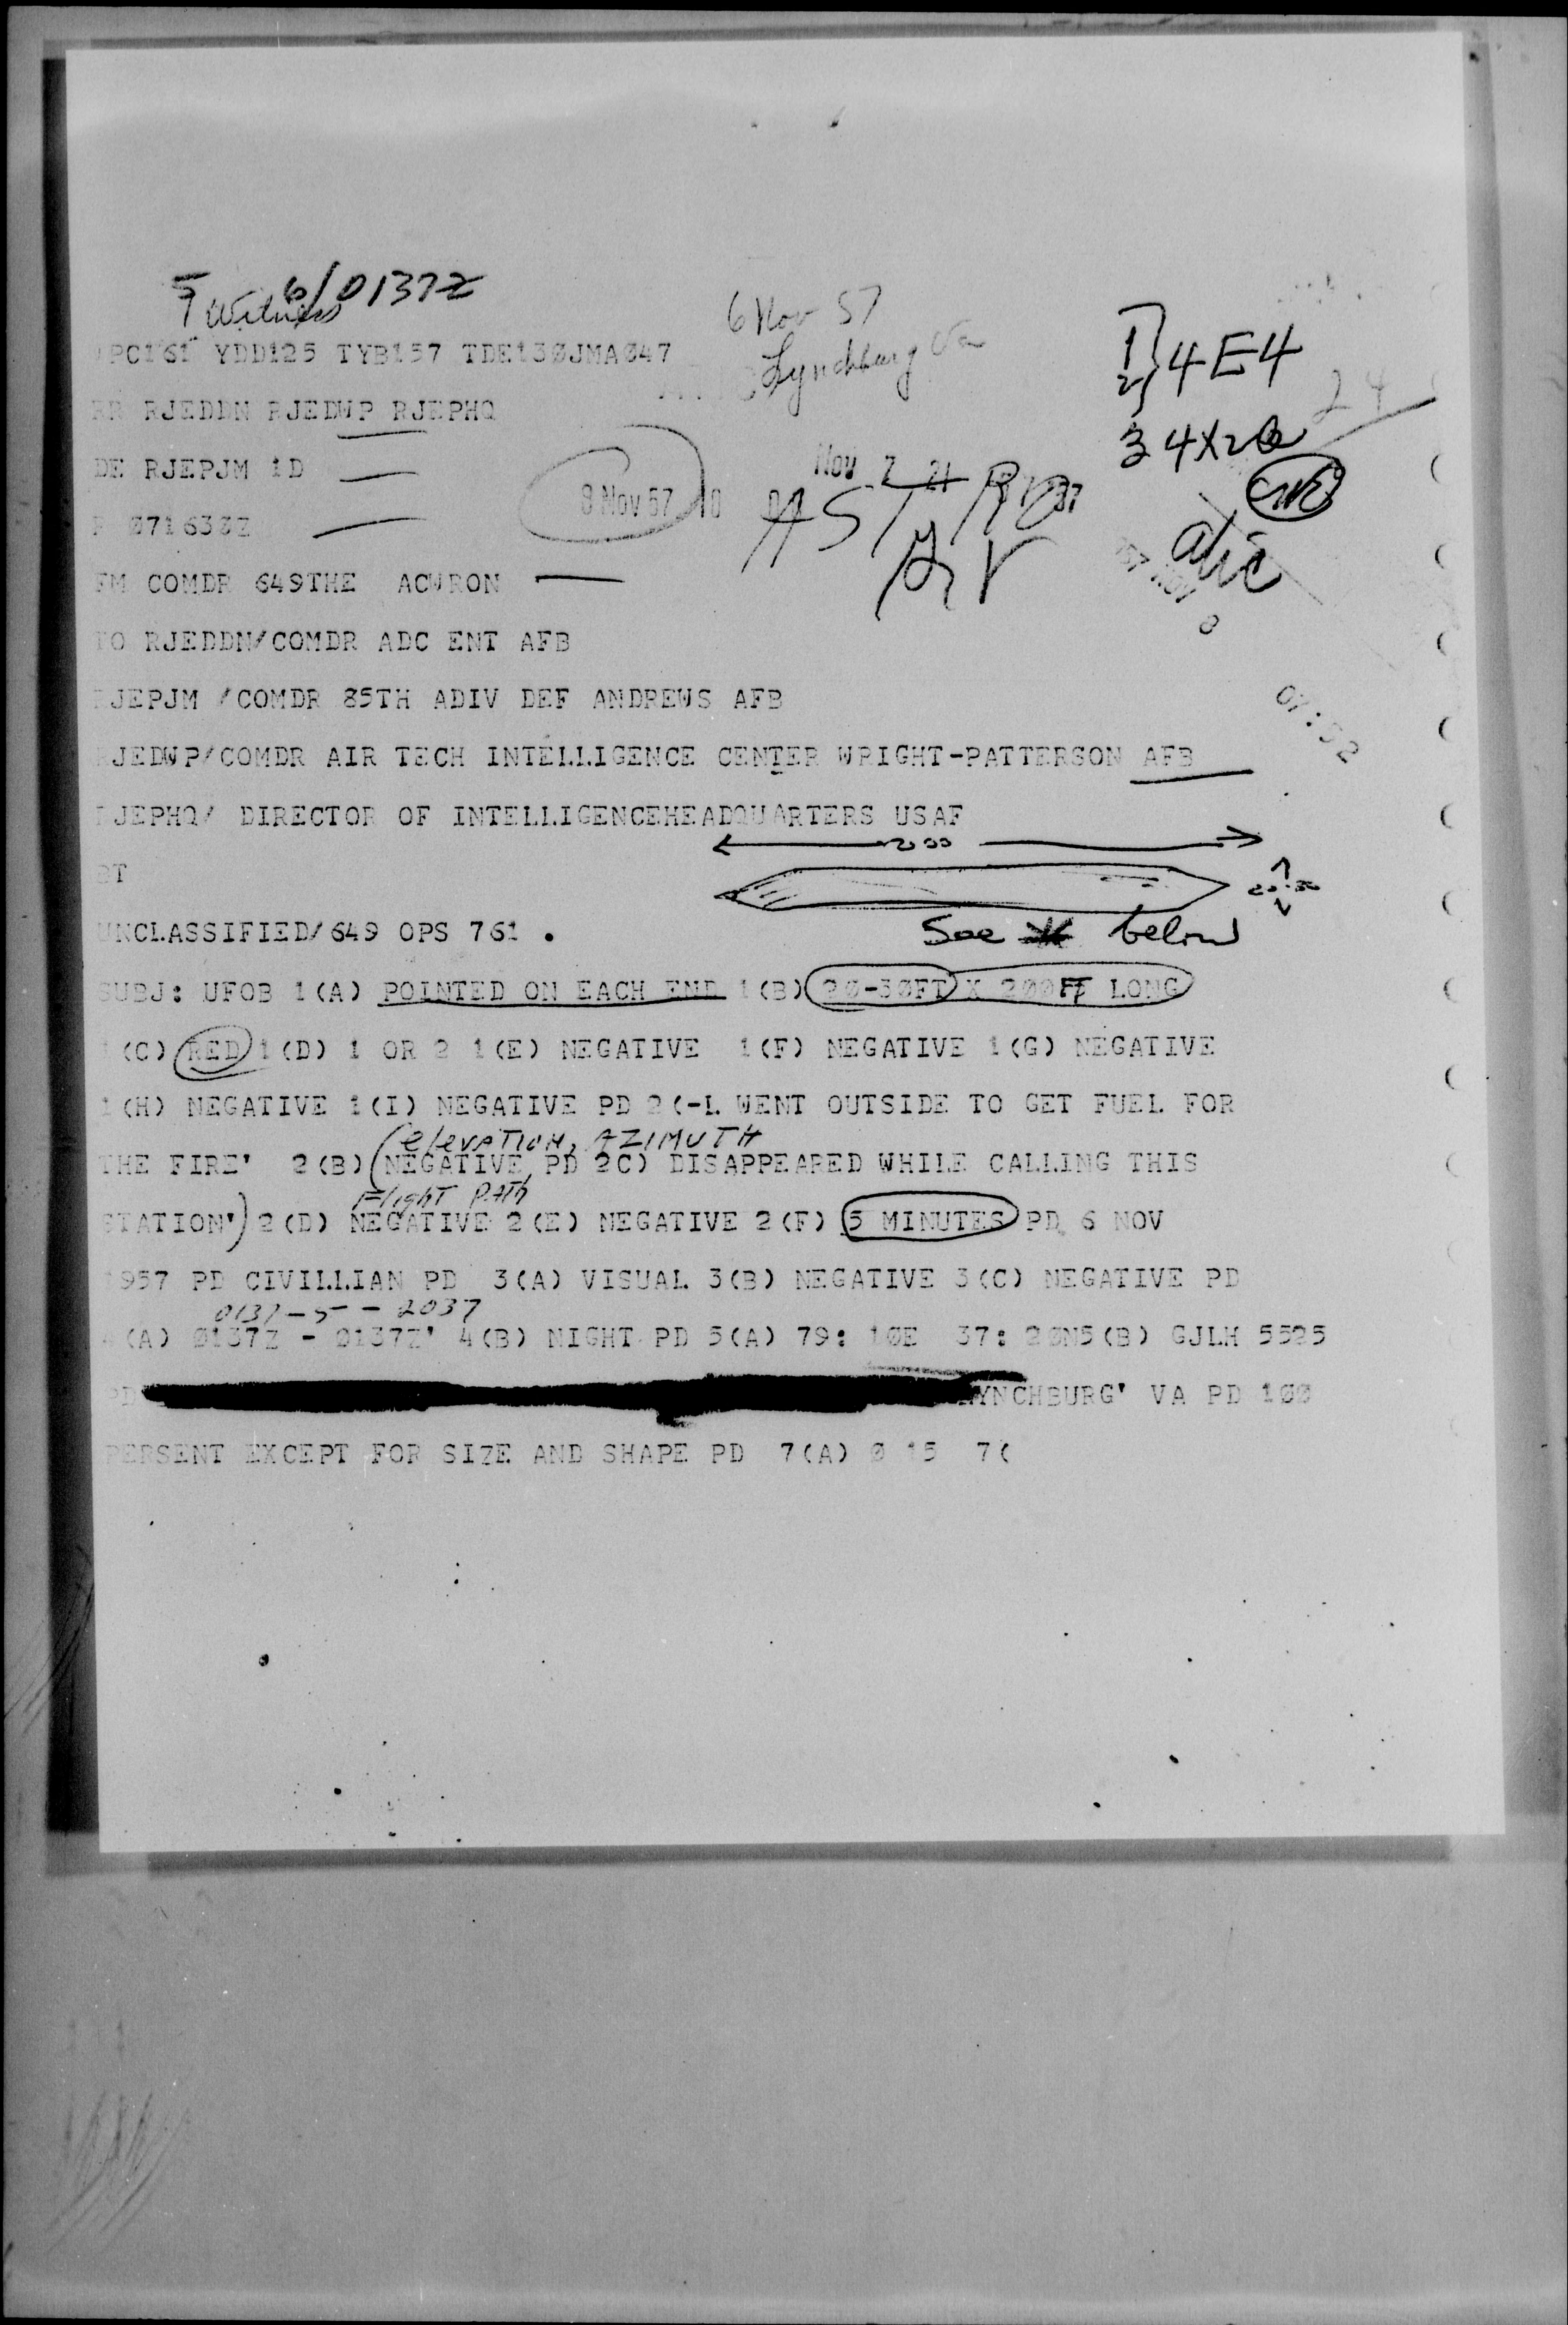 6/0137Z
Witness
6 Nov 57
Lynchburg Va
PC161 YDD125 TYB157 TDE130JMA047
4E4
RR RJEDDN RJEDWP RJEPHQ
24
3 4X20
DE RJEPJM 1D
8 Nov 57
ASTRO
071630Z
FM COMDR 649THE ACWRON
TO RJEDDN/COMDR ADC ENT AFB
JEPJM /COMDR 85TH ADIV DEF ANDREWS AFB
07:52
JEDWP/COMDR AIR TECH INTELLIGENCE CENTER WRIGHT-PATTERSON AFB
JEPHQ/ DIRECTOR OF INTELLIGENCEHEADQUARTERS USAF
200
BT
20-30
UNCLASSIFIED/649 OPS 761 .
See * below
SUBJ: UFOB 1(A) POINTED ON EACH END 1(B) 20-30FT X 200FT LONG
(C) RED 1(D) 1 OR 2 1(E) NEGATIVE 1(F) NEGATIVE 1(G) NEGATIVE
1(H) NEGATIVE 1(I) NEGATIVE PD 2(-L WENT OUTSIDE TO GET FUEL FOR
(elevation, AZIMUTH
THE FIRE' 2(B) (NEGATIVE PD 2C) DISAPPEARED WHILE CALLING THIS
Flight Path
STATION') 2(D) NEGATIVE 2(E) NEGATIVE 2(F) 5 MINUTES PD 6 NOV
1957 PD CIVILLIAN PD 3(A) VISUAL 3(B) NEGATIVE 3(C) NEGATIVE PD
0137-5-2037
(A) 0137Z - 0137Z' 4(B) NIGHT PD 5(A) 79: 10E 37: 20N5(B) GJLH 5525
PD LYNCHBURG' VA PD 100
PERSENT EXCEPT FOR SIZE AND SHAPE PD 7(A) 0 15 7(